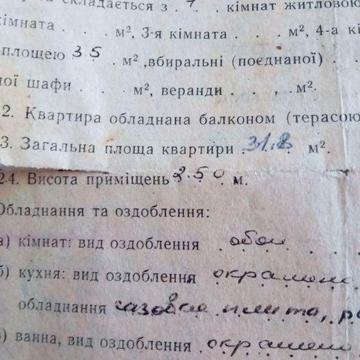 складається з 1 . кімнат житловою
кімната . . . м², 3-я кімната . . . м², 4-а кі
площею 35 . м², вбиральні (поєднаної)
ної шафи . . . м², веранди . . . м².
2. Квартира обладнана балконом (терасою
3. Загальна площа квартири . 31.8 . м².
24. Висота приміщень 2.50 м.
Обладнання та оздоблення:
а) кімнат: вид оздоблення обои
б) кухня: вид оздоблення окрашено
обладнання газовая плита,
в) ванна, вид оздоблення окрашено